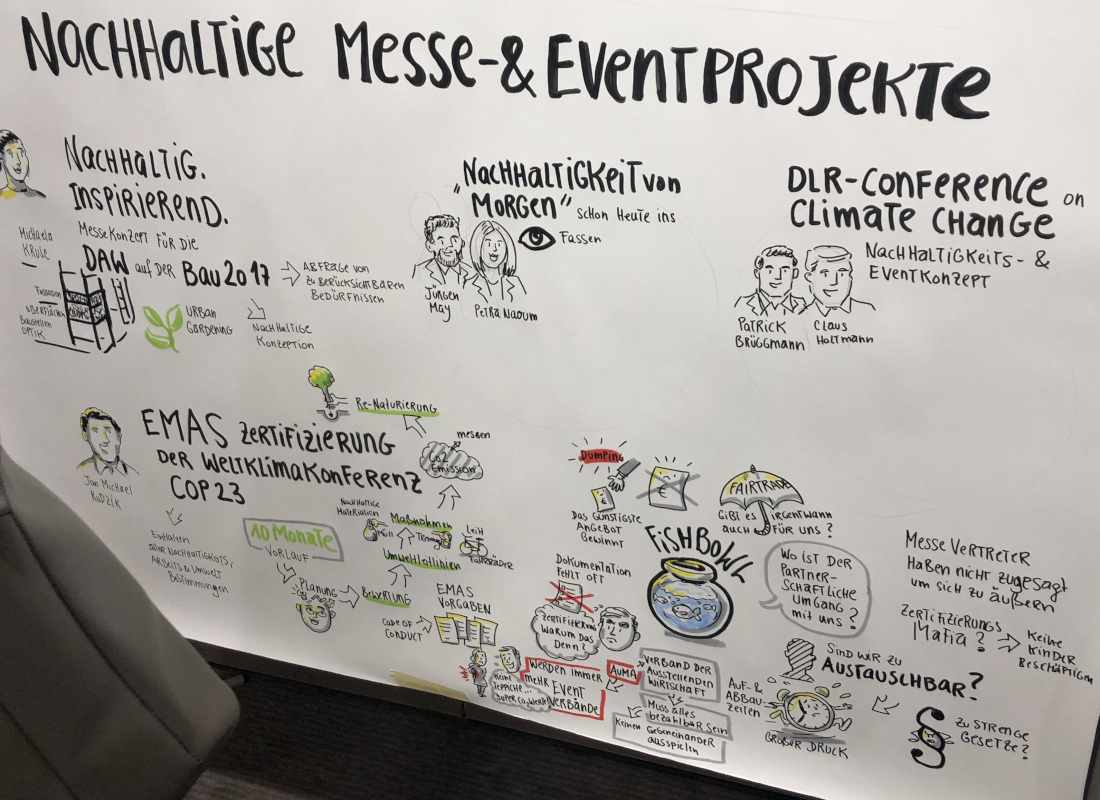 NACHHALTIGE MESSE-& EVENTPROJEKTE
NACHHALTIG.
INSPIRIEREND.
MESSEKONZEPT FÜR DIE
DAW auf DER BAU 2017
Michaela
KRUSE
FASSADEN
OBERFLÄCHEN
BAUSTELLEN
OPTIK
URBAN
GARDENING
ABFRAGE VON
ZU BERÜCKSICHTBAREN
BEDÜRFNISSEN
NACHHALTIGE
KONZEPTION
"NACHHALTIGKEIT VON
MORGEN" SCHON HEUTE INS
FASSEN
JÜRGEN
MAY
PETRA NAOUM
DLR-CONFERENCE on
CLIMATE CHANGE
NACHHALTIGKEITS- &
EVENTKONZEPT
PATRICK
BRÜGGMANN
CLAUS
HOLTMANN
Jan Michael
RUDZIK
EMAS ZERTIFIZIERUNG
DER WELTKLIMAKONFERENZ
COP 23
EINHALTEN
ALLER NACHHALTIGKEITS,
ARBEITS & UMWELT
BESTIMMUNGEN
10 MONATE
VORLAUF
PLANUNG
BEWERTUNG
CODE OF
CONDUCT
EMAS
VORGABEN
UMWELTLEITLINIEN
MAßNAHMEN
NACHHALTIGE
MATERIALIEN
MÜLL
TRENNG
LEIH
FAHRRÄDER
CO2
EMISSION
messen
RE-NATURIERUNG
DUMPING
DAS GÜNSTIGSTE
ANGEBOT
GEWINNT
€
€
FAIRTRADE
GIBT ES IRGENTWANN
AUCH FÜR UNS ?
FISHBOWL
DOKUMENTATION
FEHLT OFT
ZERTIFIZIERUNG
WARUM DAS
DENN?
WO IST DER
PARTNER-
SCHAFTLICHE
UMGANG
MIT UNS ?
KEINE
TEPPICHE...
SUPER CO2 WERTE
WERDEN IMMER
MEHR EVENT
VERBÄNDE
AUMA
VERBAND DER
AUSSTELLENDEN
WIRTSCHAFT
MUSS ALLES
BEZAHLBAR SEIN
KEINEN GEGENEINANDER
AUSSPIELEN
MESSE VERTRETER
HABEN NICHT ZUGESAGT
UM SICH ZU ÄUßERN
ZERTIFIZIERUNGS
MAFIA ?
KEINE
KINDER
BESCHÄFTIGEN
SIND WIR ZU
AUSTAUSCHBAR?
AUF- &
ABBAU-
ZEITEN
GROßER DRUCK
§
ZU STRENGE
GESETZE ?